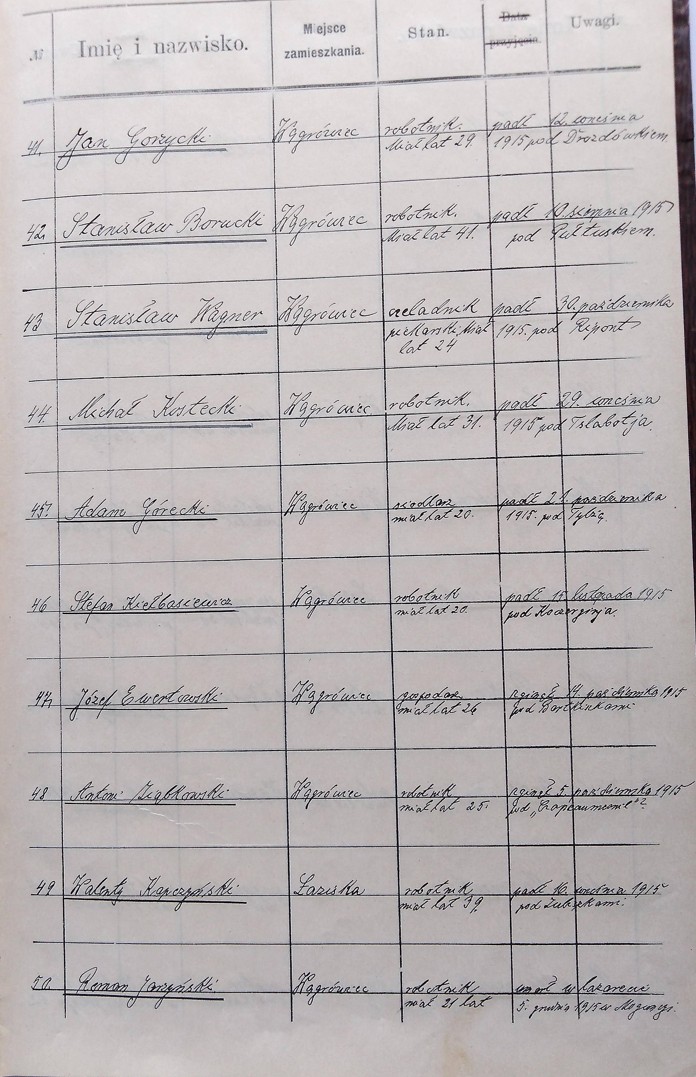 № Imię i nazwisko. Miejsce zamieszkania. Stan. Data przyjęcia. Uwagi.
41. Jan Gorzycki Wągrówiec robotnik. padł 12 września
Miał lat 29. 1915 pod Drozdówkiem.
42. Stanisław Borucki Wągrówiec robotnik. padł 10 sierpnia 1915
Miał lat 41. pod Pułtuskiem.
43 Stanisław Wagner Wągrówiec czeladnik padł 30. października
piekarski, Miał 1915. pod Ripont
lat 24
44. Michał Kostecki Wągrówiec robotnik. padł 29. września
Miał lat 31. 1915 pod
45. Adam Górecki Wągrówiec siodlarz padł 21. października
miał lat 20. 1915. pod Tylżą.
46 Stefan Kiełbasiewicz Wągrówiec robotnik padł 15. listopada 1915
miał lat 20. pod
47. Józef Ewertowski Wągrówiec gospodarz zginął 14. października 1915
miał lat 26 pod
48 Antoni Ziąbkowski Wągrówiec robotnik zginął 5. października 1915
miał lat 25. pod
49 Walenty Kapczyński Łaziska robotnik padł 16. września 1915
miał lat 39. pod
50. Roman Jarzyński Wągrówiec robotnik umarł w lazarecie
miał 21 lat 5. grudnia 1915 w Moguncji.